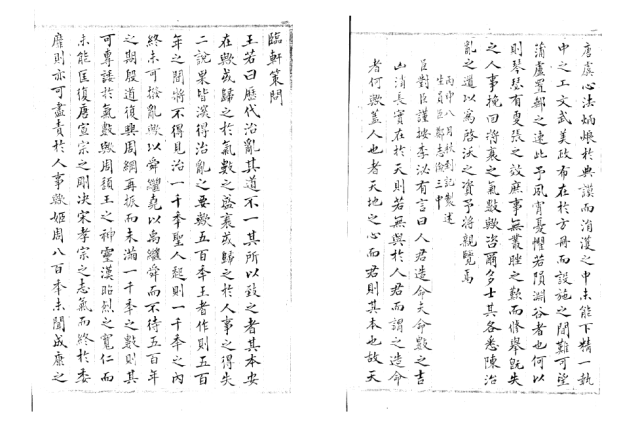 唐虞心法炳烺於典謨而淆漫之中未能下精一執
中之工文武美政布在於方冊而設施之間難可望
蒲盧置郵之速此予夙宵憂懼若隕淵谷者也何以
則琴瑟有更張之效庶事無叢脞之歎而修舉旣失
之人事挽回將衰之氣數歟咨爾多士其各悉陳治
亂之道以爲啓沃之資予將親覽焉
丙申八月秋到記製述
生員臣鄭志 三中
臣對臣謹按李泌有言曰人君造命夫命數之吉
凶消長實在於天則若無與於人君而謂之造命
者何歟蓋人也者天地之心而君則其本也故天
臨軒策問
王若曰歷代治亂其道不一其所以致之者其本安
在歟或歸之於氣數之盛衰或歸之於人事之得失
二說果皆深得治亂之要歟五百年王者作則五百
年之間將不得見治一千年聖人起則一千年之內
終未可撥亂歟以舜繼堯以禹繼舜而不待五百年
之期殷道復興周綱再振而未滿一千年之數則其
可專諉於氣數歟周頹王之神靈漢昭烈之寬仁而
未能匡復唐宣宗之剛決宋孝宗之志氣而終於委
靡則亦可盡責於人事歟姬周八百年未聞成康之